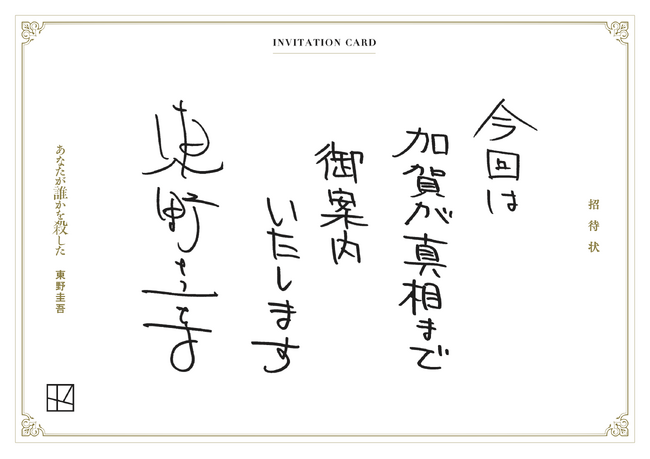 INVITATION CARD
招待状
今回は
加賀が真相まで
御案内
いたします
東野圭吾
あなたが誰かを殺した 東野圭吾